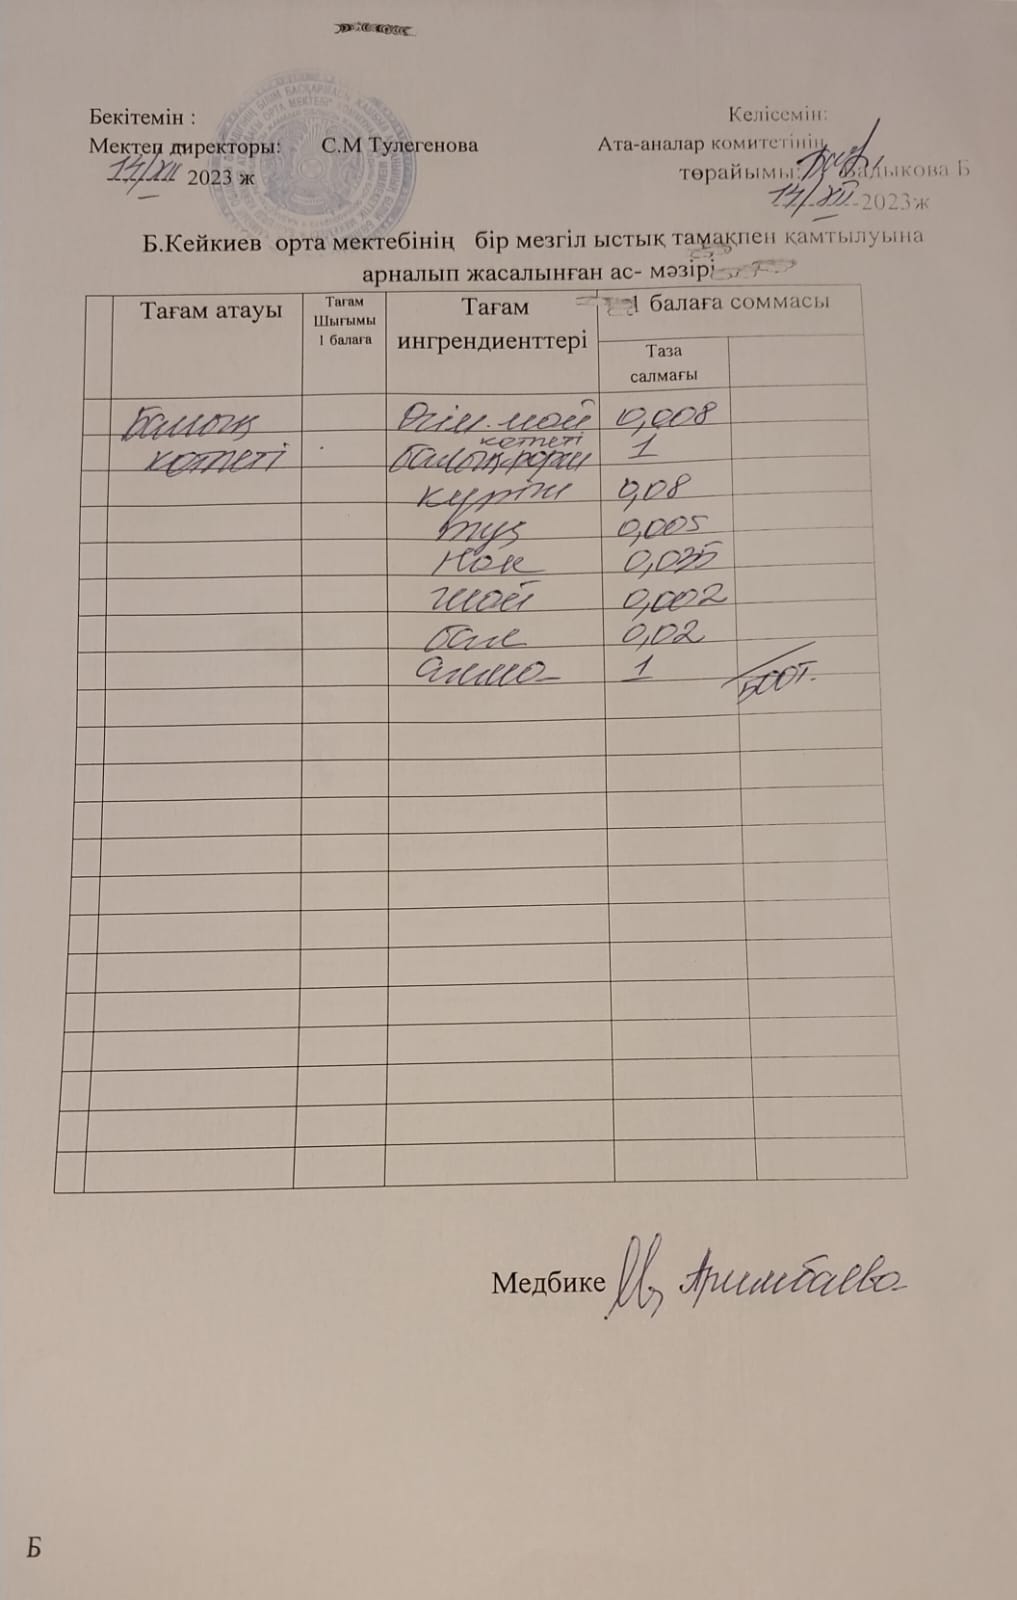 Бекітемін :
Мектеп директоры: С.М Тулегенова
14/XII 2023 ж
Келісемін:
Ата-аналар комитетінің
төрайымы: Бадыкова Б
14/XII-2023ж
Б.Кейкиев орта мектебінің бір мезгіл ыстық тамақпен қамтылуына
арналып жасалынған ас- мәзірі
Тағам атауы
Тағам
Шығымы
1 балаға
Тағам
ингрендиенттері
1 балаға соммасы
Таза
салмағы
Балық Өсім.май 0,008
котлеті балық-фарш котлеті 1
күріш 0,08
тұз 0,005
Нан 0,035
шай 0,002
бал 0,02
алма 1 500т.
Медбике Аримбаева
Б